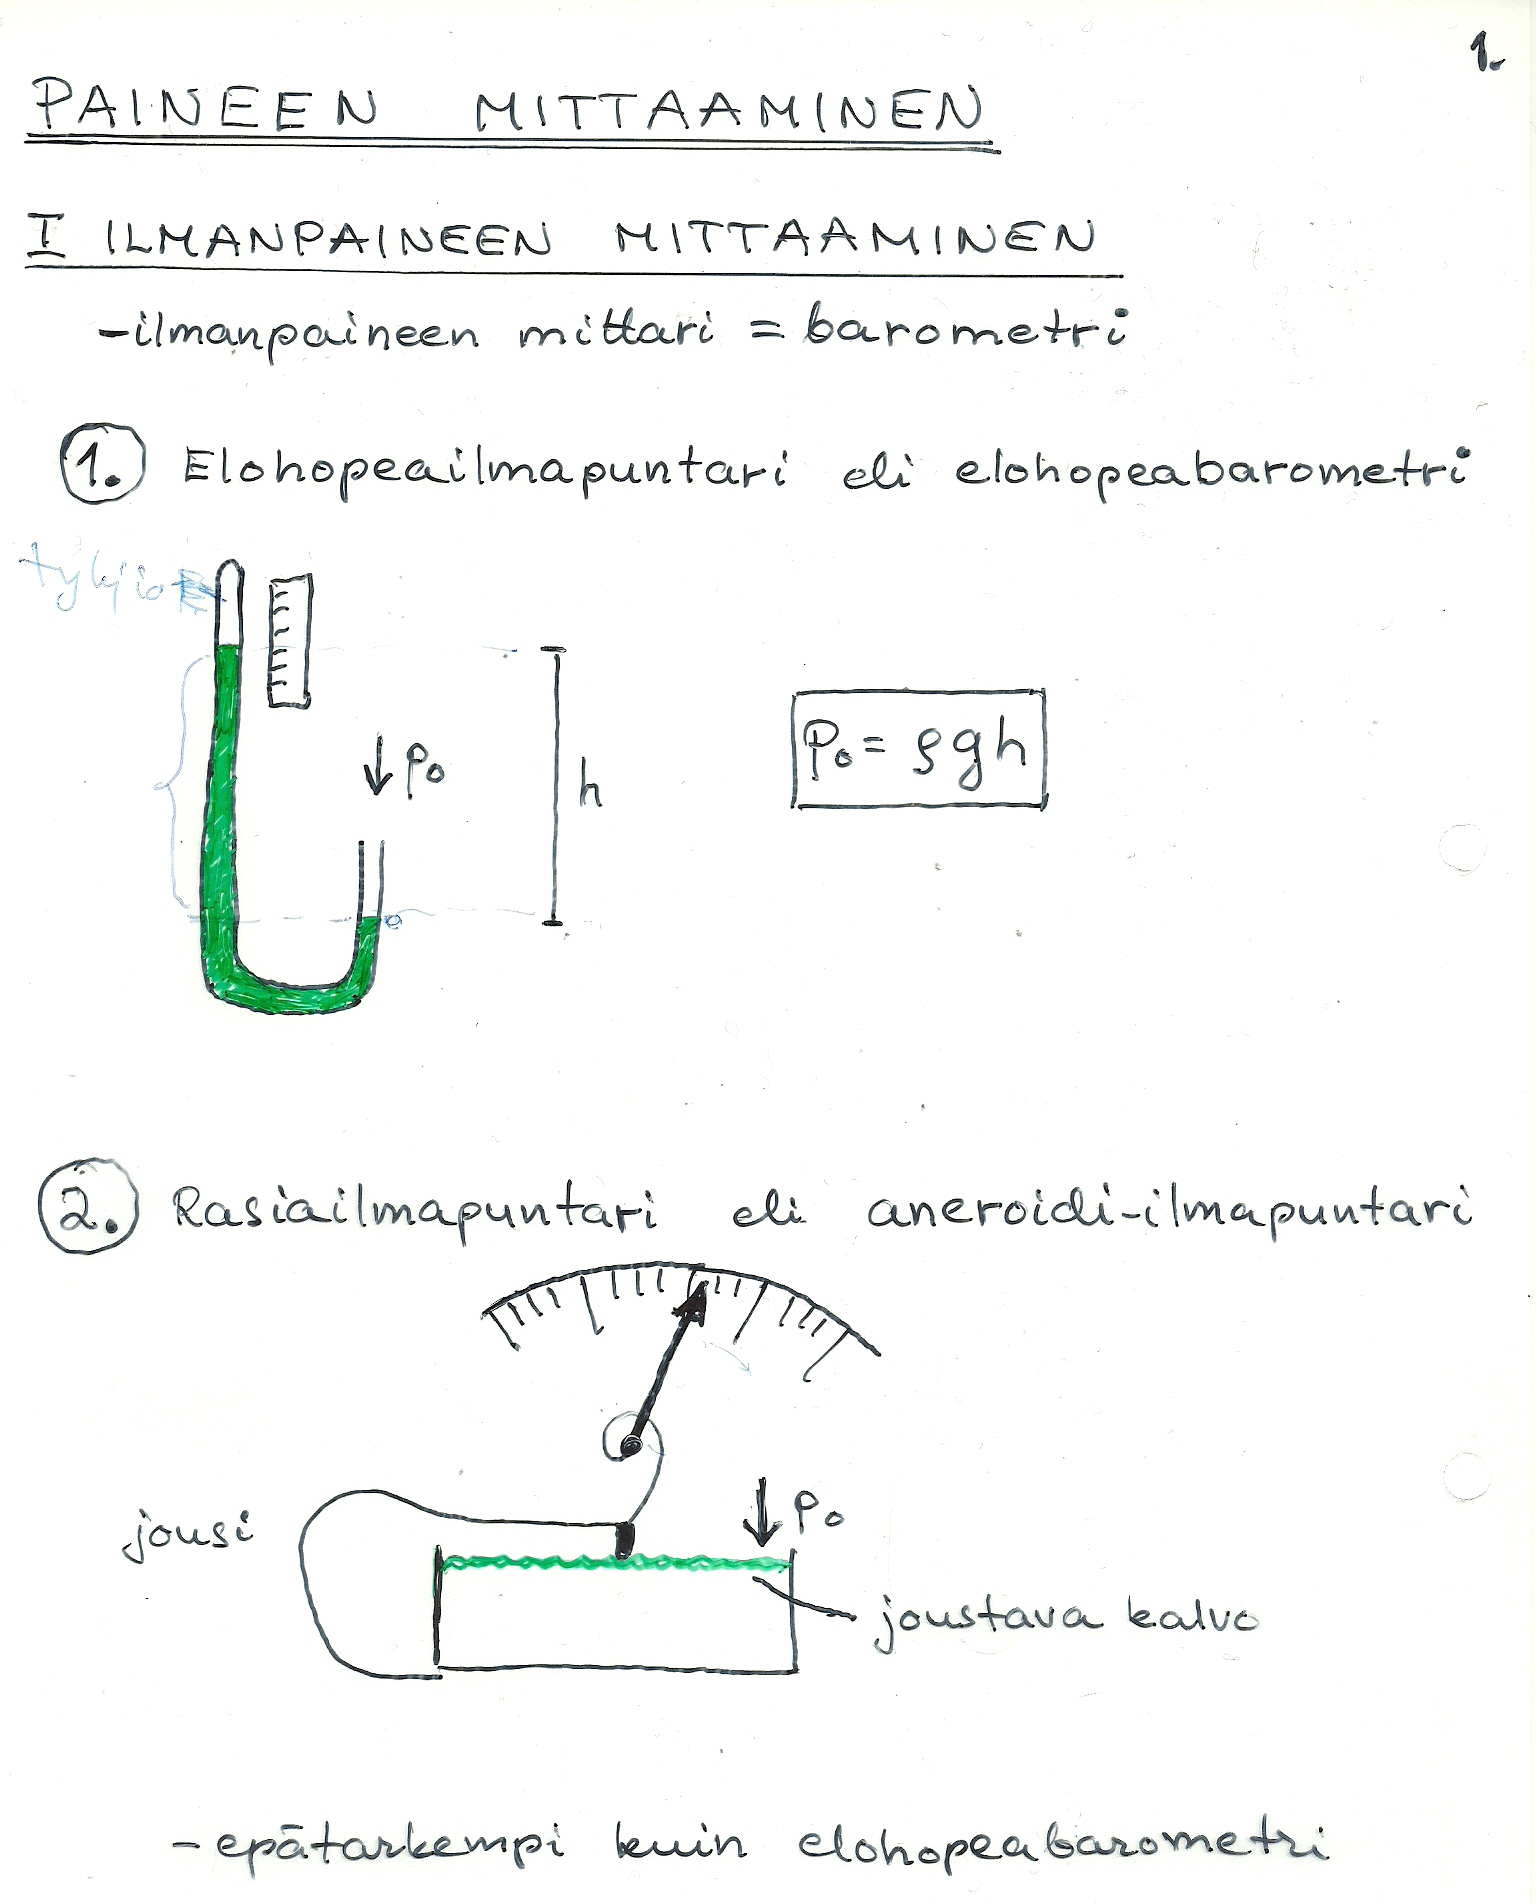 1.
PAINEEN MITTAAMINEN
I ILMANPAINEEN MITTAAMINEN
-ilmanpaineen mittari = barometri
1. Elohopeailmapuntari eli elohopeabarometri
tyhjiö
p₀
h
p₀ = ρgh
2. Rasiailmapuntari eli aneroidi-ilmapuntari
jousi
p₀
joustava kalvo
- epätarkempi kuin elohopeabarometri